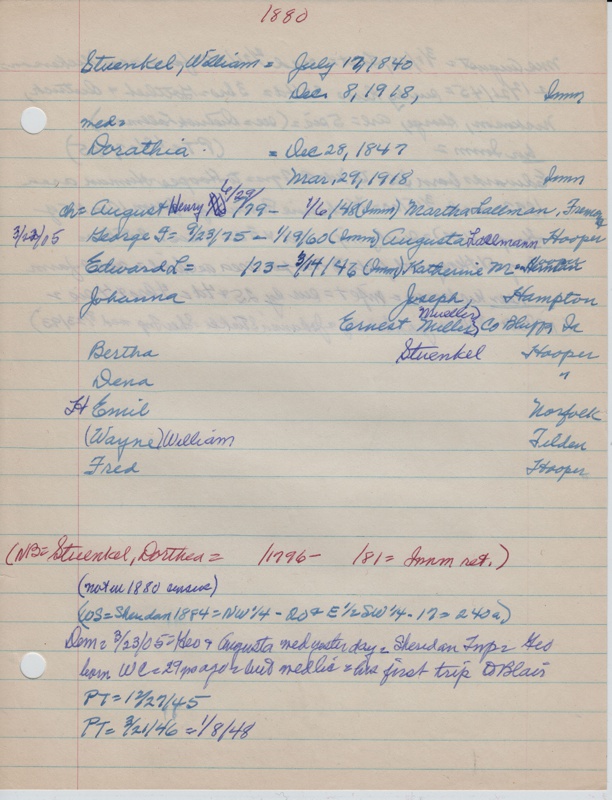 1880
Stuenkel, William = July 17, 1840
Dec. 8, 1918, Imm
med =
Dorathia = Dec 28, 1847
Mar. 29, 1918 Imm
ch = August Henry 6/29/79 - 1/6/48 (Imm) Martha Lallman,
3/23/05 George F = 9/23/75 - 1/19/60 (Imm) Augusta Lallmann - Hooper
Edward L = /73 - 3/14/46 (Imm) Katherine M =
Johanna Joseph, Hampton
Ernest Miller Mueller) Co Bluffs Ia
Bertha Stuenkel Hooper
Dena "
H Emil Norfolk
(Wayne) William Tilden
Fred Hooper
(NB = Stuenkel, Dorthea = /1796 - /81 = Imm ret.)
(not in 1880 census)
(OS = Sheridan 1884 = NW 1/4 - 20 & E 1/2 SW 1/4 - 17 = 240 a)
Dem = 3/23/05 = Geo & Augusta med yesterday = Sheridan Twp = Geo
born WC = 29 mo ago = had med lic = first trip to Blair
PT = 12/27/45
PT = 3/21/46 = 1/8/48